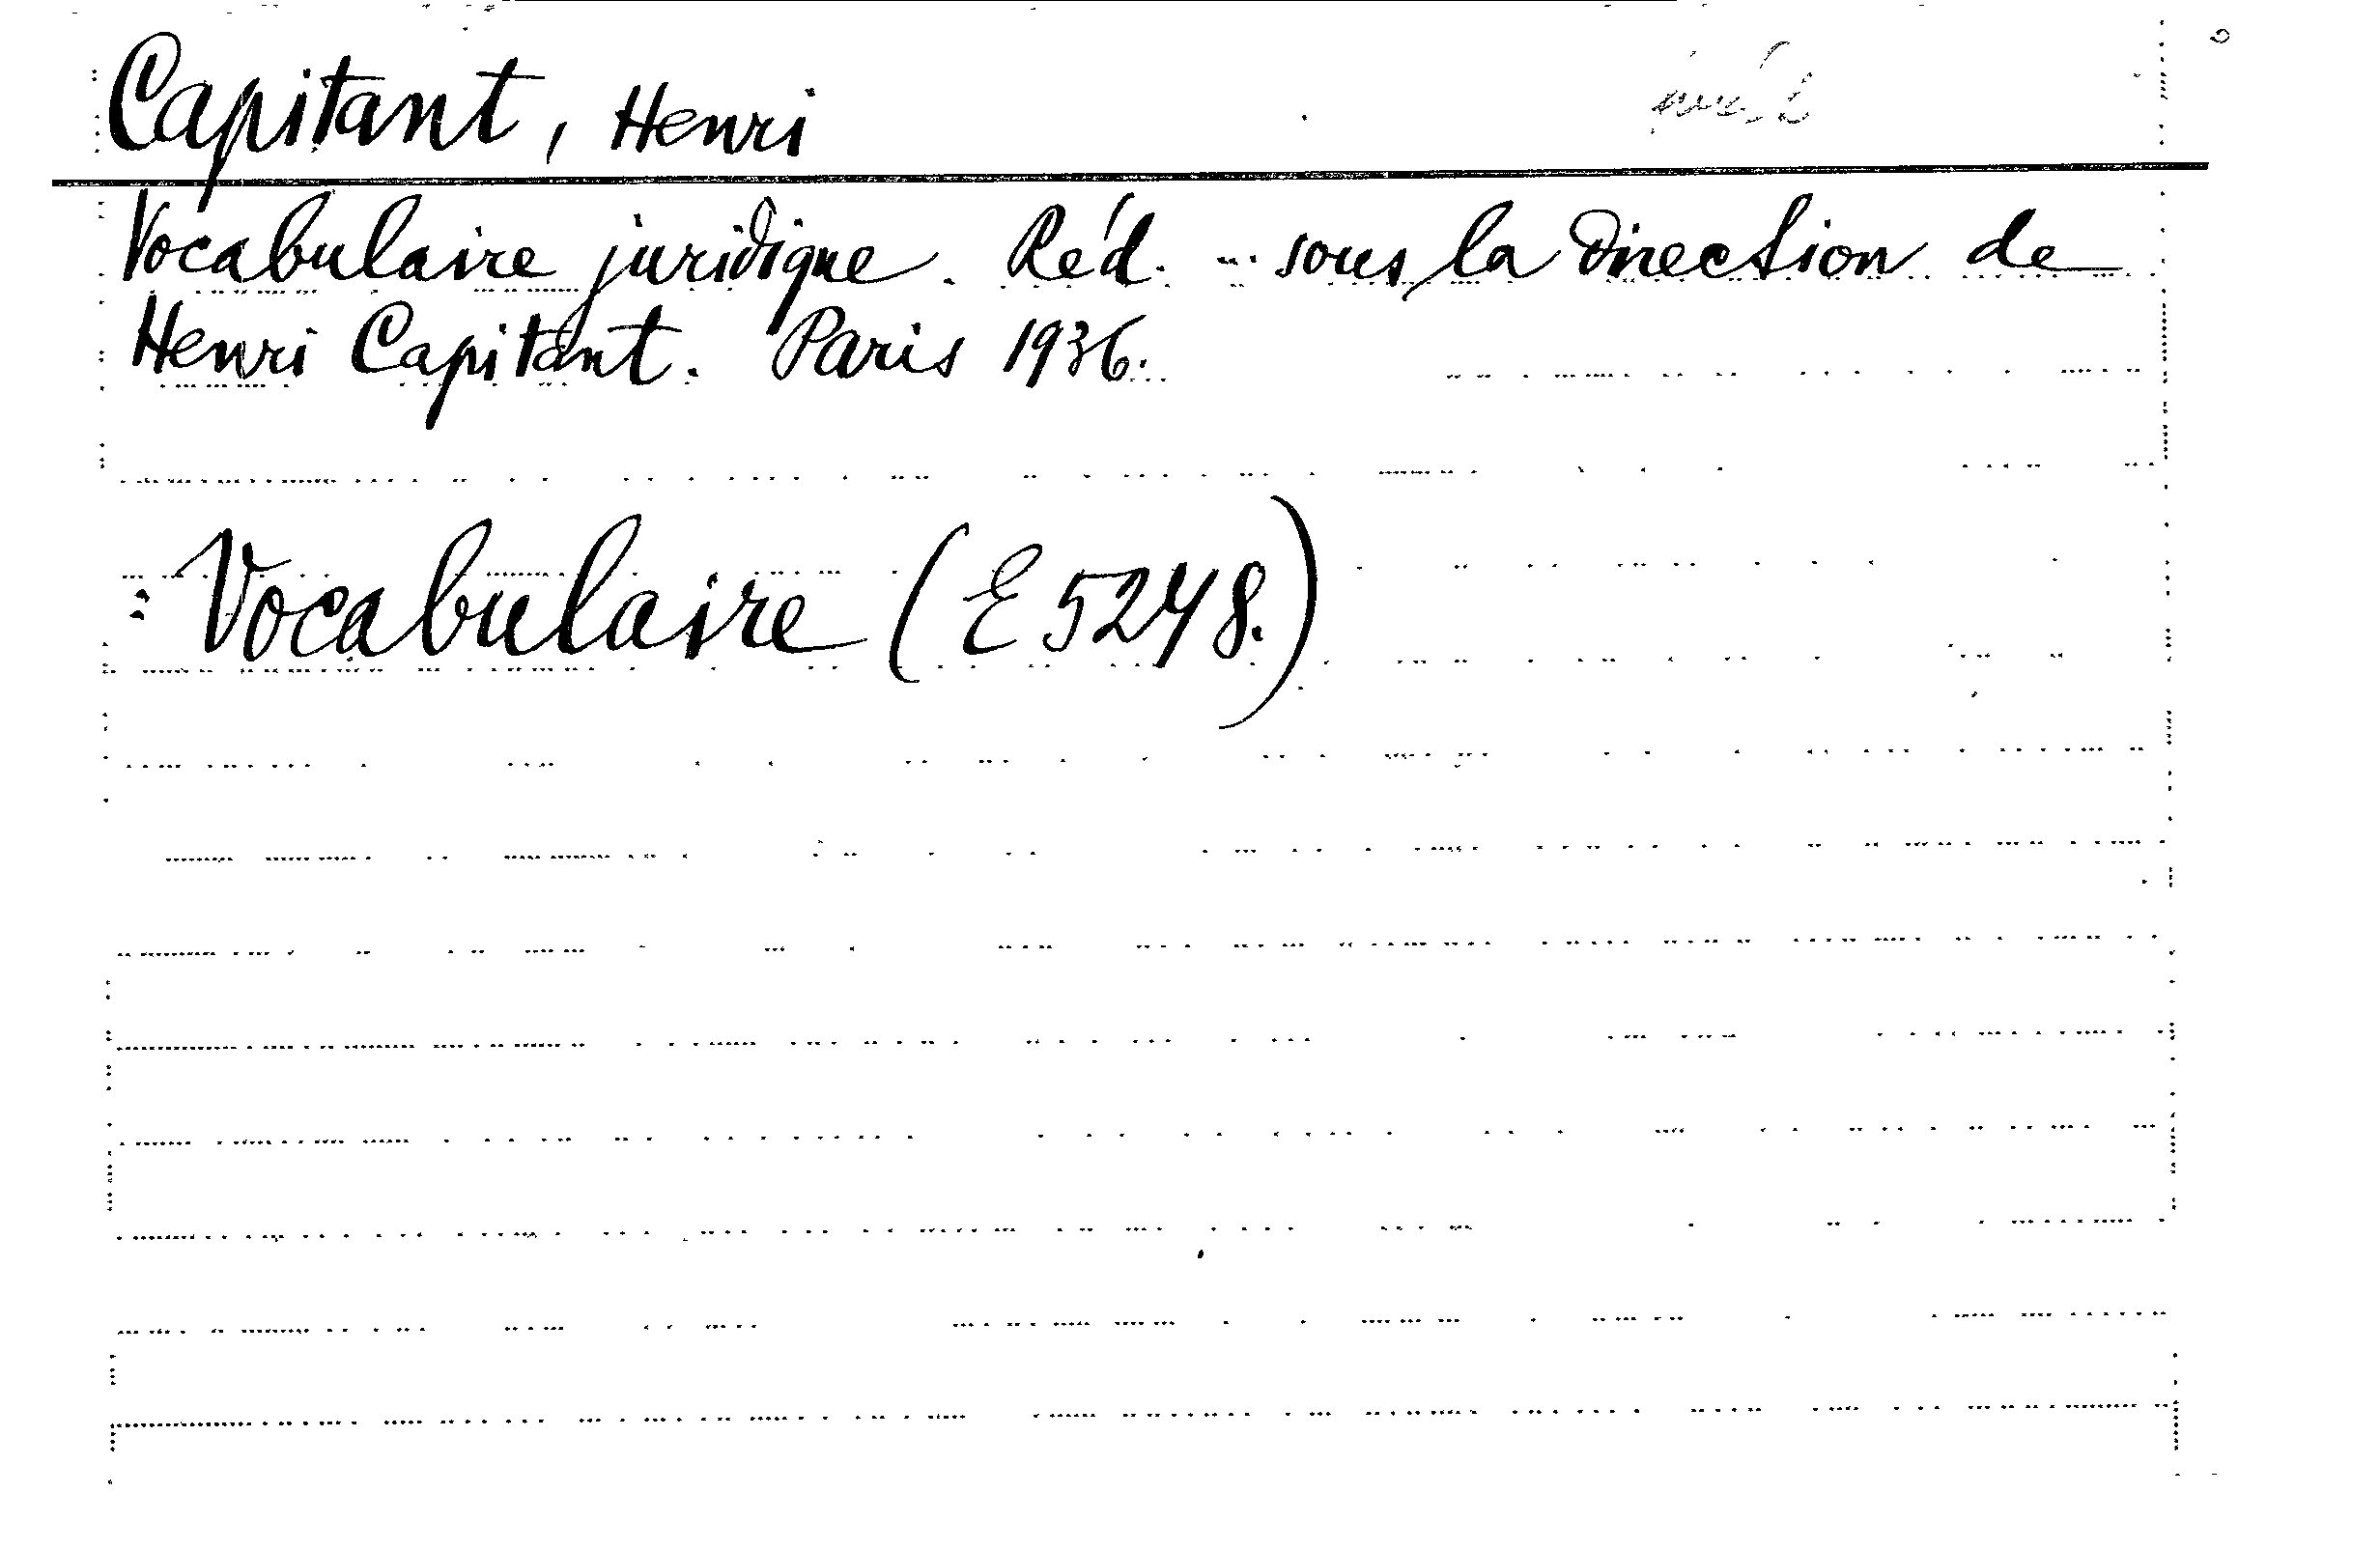 Capitant, Henri
Vocabulaire juridique. Réd. ... sous la direction de
Henri Capitant. Paris 1936.
: Vocabulaire (E 5248.)